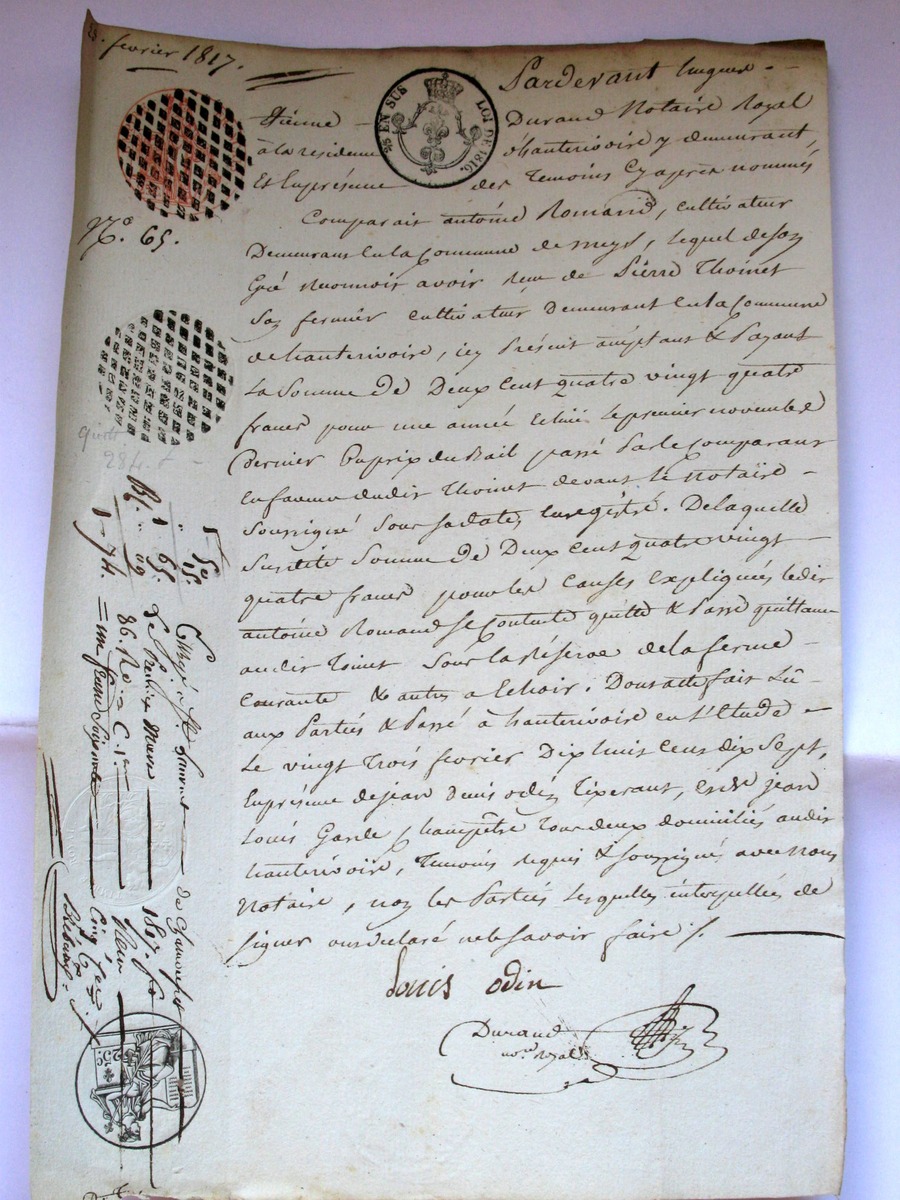 23. fevrier 1817.
25 EN SUS LOI DE 1816.
Pardevant hugues
Etienne Durand Notaire Royal
à la residence d'hauterivoire y demeurant
Et Enpresence des Temoins Cy après nommés
Comparait antoine Romand, cultivateur
Demeurant En la Commune de meys, lequel de son
Gré Reconnoit avoir Reçu de Pierre Thoinet
Son fermier cultivateur Demeurant En la Commune
de hauterivoire, icy Présent acceptant & Payant
La Somme de Deux Cent quatre vingt quatre
francs pour une année Echüe le premier novembre
Dernier Du prix du Bail passé Par le Comparant
En faveur dudit Thoinet devant le notaire
Soussigné Sous sa date, Enregistré. De laquelle
Susdite Somme de Deux Cent quatre vingt
quatre francs pour les Causes Expliquées ledit
antoine Romand se Contente quitte & Passe quittance
audit Toinet Sous la Réserve de la ferme
Courante & autres a Echoir. Dont acte fait Lû
aux Parties & Passé à hauterivoire en l'Etude
Le vingt Trois fevrier Dix huit Cent dix Sept,
Enprésence de jean Denis odin Tixerant, et de jean
Louis Garde Champêtre Tous deux domiciliés audit
hauterivoire, Temoins Requis & soussignés avec nous
Notaire, non les Parties Lesquelles interpellées de
signer ont declaré ne le Savoir faire /.
Louis odin
Durand
not.re Royal
N.o 65.
284.
1 50
15
1 65
09
1 - 74.
Enregistré à St Laurent de Chamousset
Le Premier Mars 1817. fo
86. Ro C. 1.er
25c.